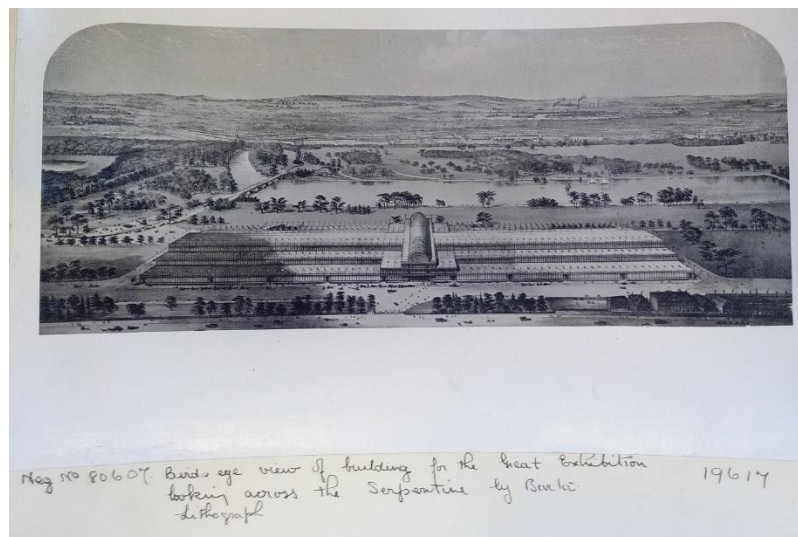 Neg No 80607. Birds eye view of building for the Great Exhibition 19617
looking across the Serpentine by
Lithograph